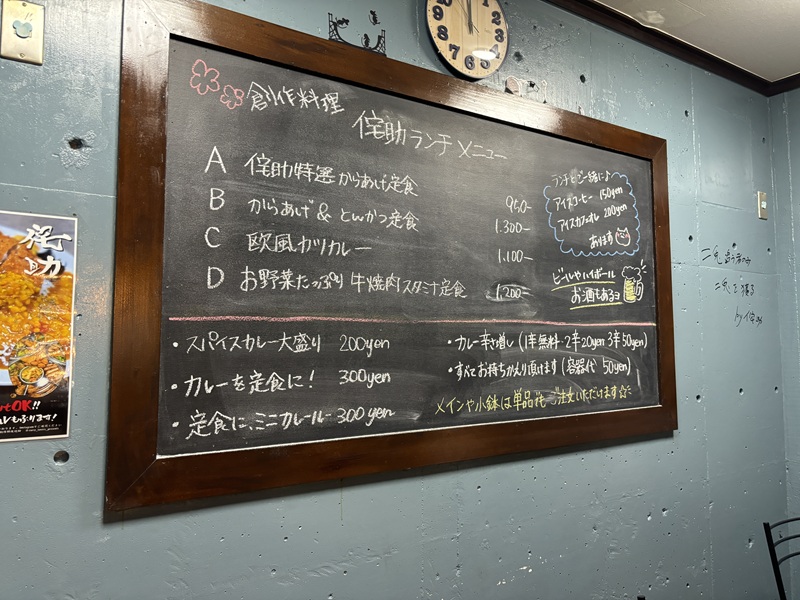 創作料理
侘助ランチメニュー
A 侘助特選からあげ定食 950-
B からあげ & とんかつ定食 1.300-
C 欧風カツカレー 1.100-
D お野菜たっぷり牛焼肉スタミナ定食 1.200-
ランチとご一緒に♪
アイスコーヒー 150yen
アイスカフェオレ 200yen
あります
ビールやハイボール
お酒もあるヨ
・スパイスカレー大盛り 200yen
・カレーを定食に! 300yen
・定食にミニカレー 300yen
・カレー辛さ増し(1辛無料・2辛20yen 3辛50yen)
・すべてお持ちかえり頂けます(容器代 50yen)
メインや小鉢は単品でもご注文いただけます☆
侘助
rtOK!!
もあります!
二兎
10
9
8
7
6
5
4
3
2